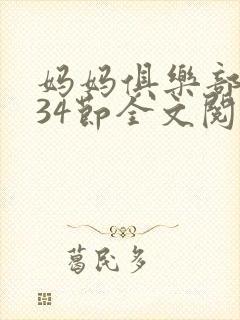 妈妈俱樂部
34節全文閱
葛民多